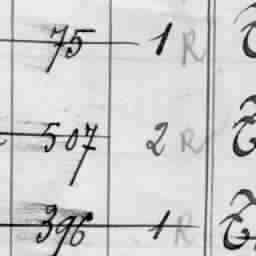 75 1 R
507 2 R
396 1 R